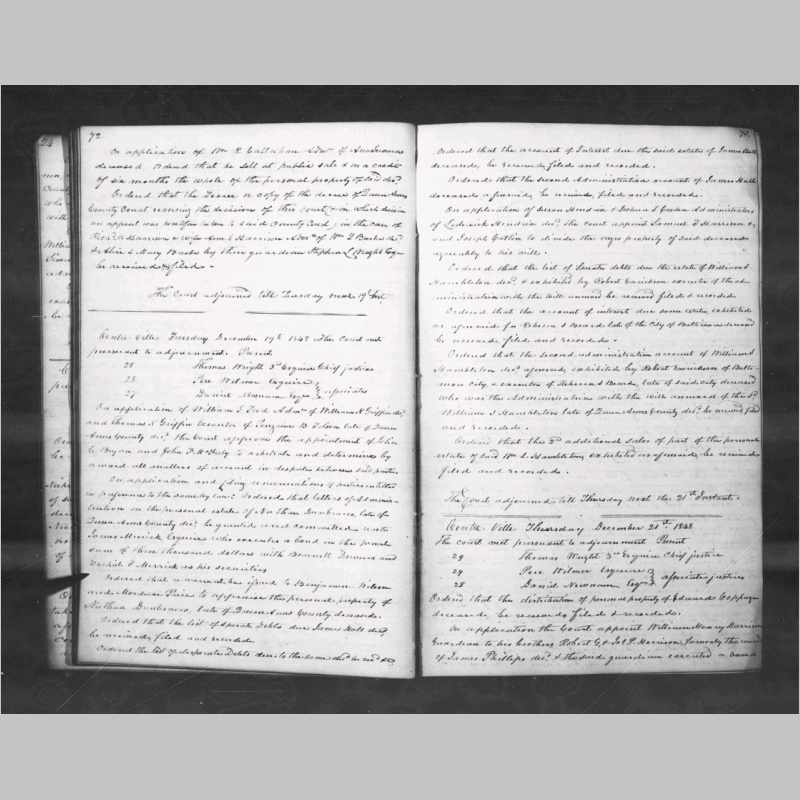 72
On application of Wm H Callahan Adm of
deceased Ordered that he sell at public sale & on a credit
of six months the whole of the personal property of said decd
Ordered that the a copy of the decree of Queen Anns
County Court reversing the decision of this court in which decision
an appeal was taken to said County Court in the case of
Harrison & wife Harrison Adm of Wm Banks decd
& Mary Banks by their guardian Stephen Wright Esq
be received & filed
The Court adjourned till Tuesday next 19th Inst
Centre Ville Tuesday December 19th 1848 The Court met
pursuant to adjournment Present
28 Thomas Wright 3rd Esquire Chief justice
28 Pere Wilmer Esquire
27 Daniel Newnam Esqr associates
On application of William Admr of William H Griffin decd
and Thomas H Griffin Executor of Benjamin late of Queen
Anns County decd the Court approves the appointment of John
C. Bryan and John to arbitrate and determine by
award all matters of account in despute between said parties
On application and filing renunciations of parties entitled
in preference to the same by law: Ordered that letters of adminis-
tration on the personal estate of Nathan late of
Queen Anns County decd be granted and committed unto
James Merrick Esquire who executes a bond in the penal
sum of three thousand dollars with Bennett Downes and
Merrick as his securities
Ordered that a warrant be issued to Benjamin
and Price to appraise the personal property of
Nathan late of Queen Anns County deceased
Ordered that the list of sperate Debts due James Hall decd
be received, filed and recorded
Ordered the list of desperate Debts due to the same decd be recd &
Ordered that the account of Interest due the said estate of James Hall
deceased, be received filed and recorded.
Ordered that the second Administration account of James Hall
deceased aforesaid, be received, filed and recorded.
On application of Hendrix & Joshua Administrators
of Hendrix decd The court appoint Samuel T Harrison &
and Joseph to divide the negro property of said deceased
agreeably to his will.
Ordered that the list of Sperate debts due the estate of William
Hambleton decd exhibited by Robert executor of the ad-
ministration with the will annexed be received filed & recorded.
Ordered that the account of interest due same estate, exhibited
as aforesaid for Rebecca late of the City of Baltimore deceased
be received, filed and recorded.
Ordered that the second administration account of William
Hambleton decd aforesaid, exhibited by Robert of Balti-
more City & executor of Rebecca late of said city deceased
who was the Administratrix with the will annexed of the sd
William Hambleton late of Queen Anns County decd be received filed
and recorded.
Ordered that the 2d additional sales of part of the personal
estate of said Wm Hambleton, exhibited as aforesaid, be received
filed and recorded.
The Court adjourned till Thursday next the 21st Instant.
Centre Ville Thursday December 21st 1848
The court met pursuant to adjournment Present
29 Thomas Wright 3rd Esquire Chief justice
29 Pere Wilmer Esquire
28 Daniel Newnam Esqr associates justices
Ordered that the distribution of personal property of Edward Coppage
deceased, be received filed & recorded.
On application the Court appoint William Henry Harrison
Guardian to his brothers Robert G & Harrison, formerly the ward
of James Phillips decd & the said guardian executed a bond